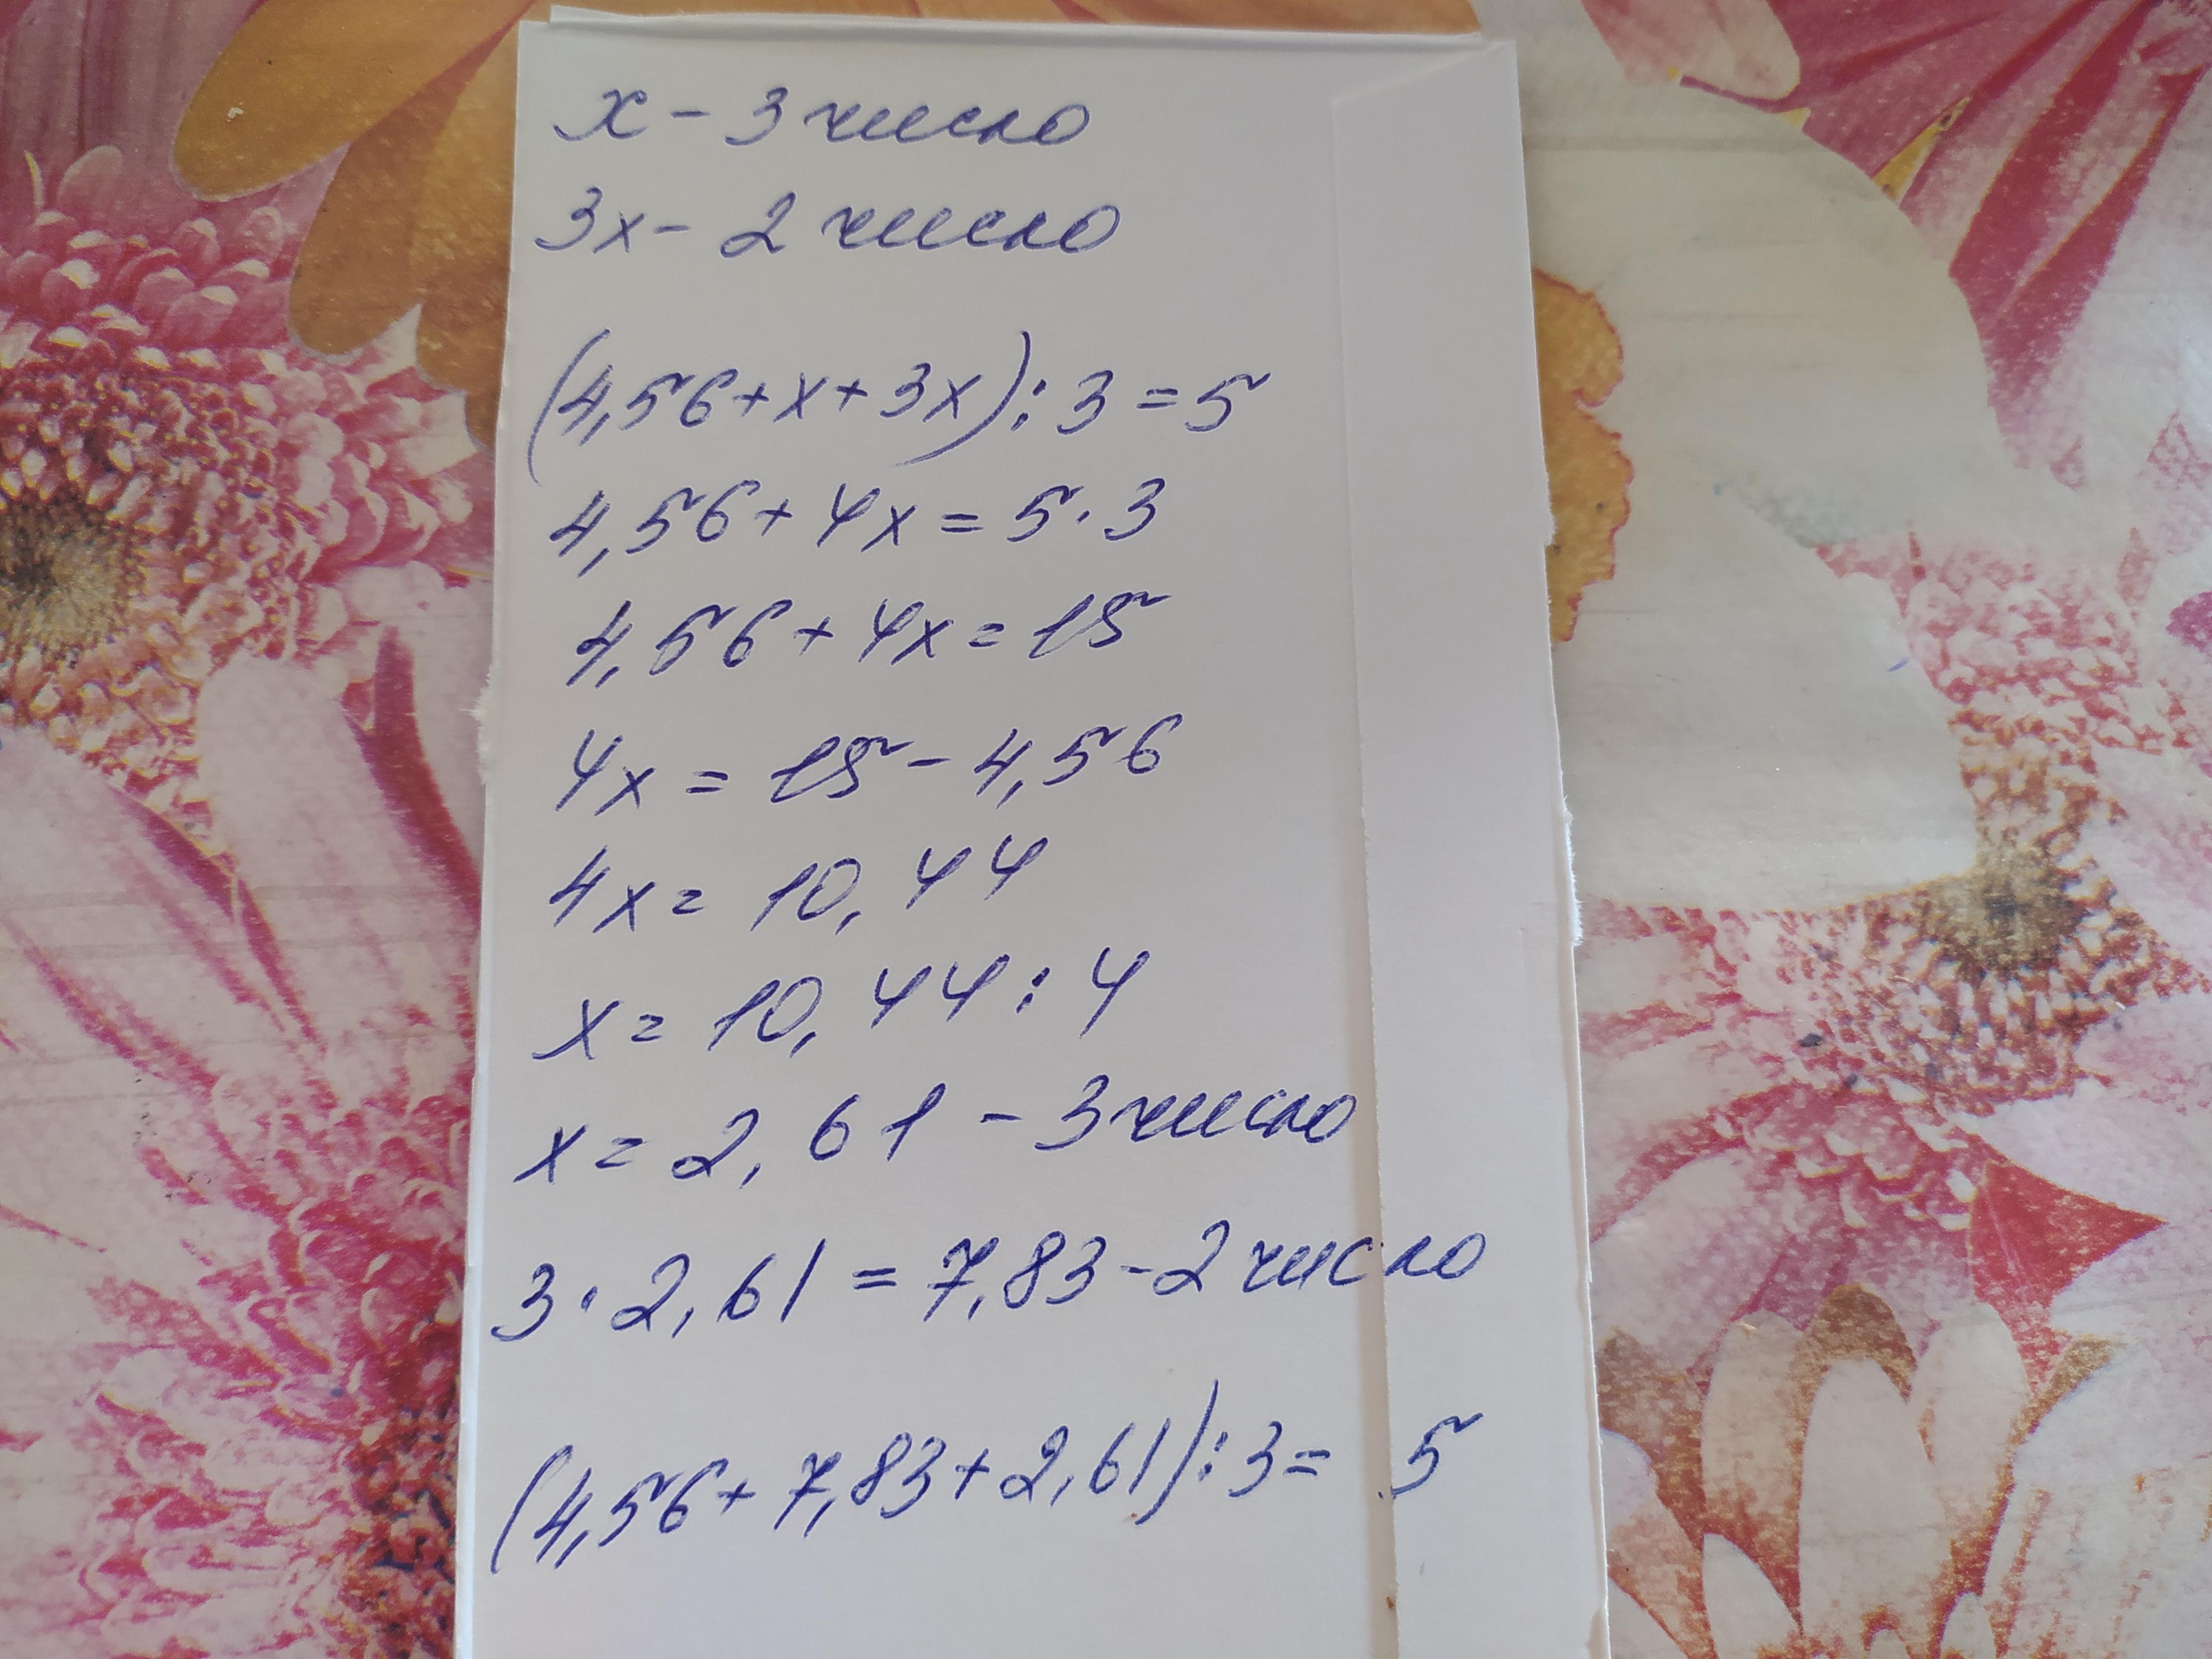 x - 3 число
3x - 2 число
(4,56+x+3x):3=5
4,56+4x=5·3
4,56+4x=15
4x=15-4,56
4x=10,44
x=10,44:4
x=2,61 - 3 число
3·2,61=7,83-2 число
(4,56+7,83+2,61):3=5